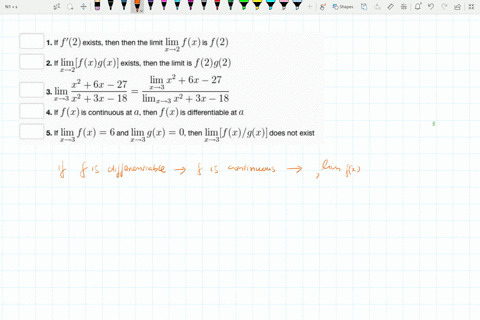 1. If f'(2) exists, then then the limit lim x→2 f(x) is f(2)
2. If lim x→2 [f(x)g(x)] exists, then the limit is f(2)g(2)
3. lim x→3 (x² + 6x − 27)/(x² + 3x − 18) = (lim x→3 x² + 6x − 27)/(lim x→3 x² + 3x − 18)
4. If f(x) is continuous at a, then f(x) is differentiable at a
5. If lim x→3 f(x) = 6 and lim x→3 g(x) = 0, then lim x→3 [f(x)/g(x)] does not exist
if f is differentiable → f is continuous → , lim f(x)